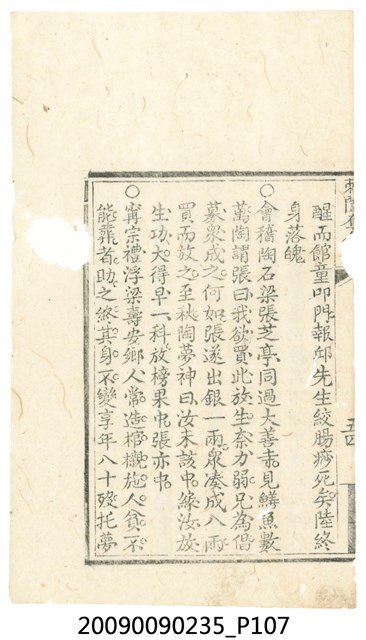 醒而館童叩門報邱先生絞腸痧死矣陸終
身落魄
○會稽陶石梁張芝亭同過大善寺見鱔魚數
萬陶謂張曰我欲買此放生奈力弱兄為倡
募眾成之何如張遂出銀一兩眾湊成八兩
買而放之至秋陶夢神曰汝未該中緣汝放
生功大得早一科放榜果中張亦中
○甯宗禮浮梁壽安鄉人常造棺櫬施人貧不
能葬者助之終其身不變享年八十歿托夢
20090090235_P107